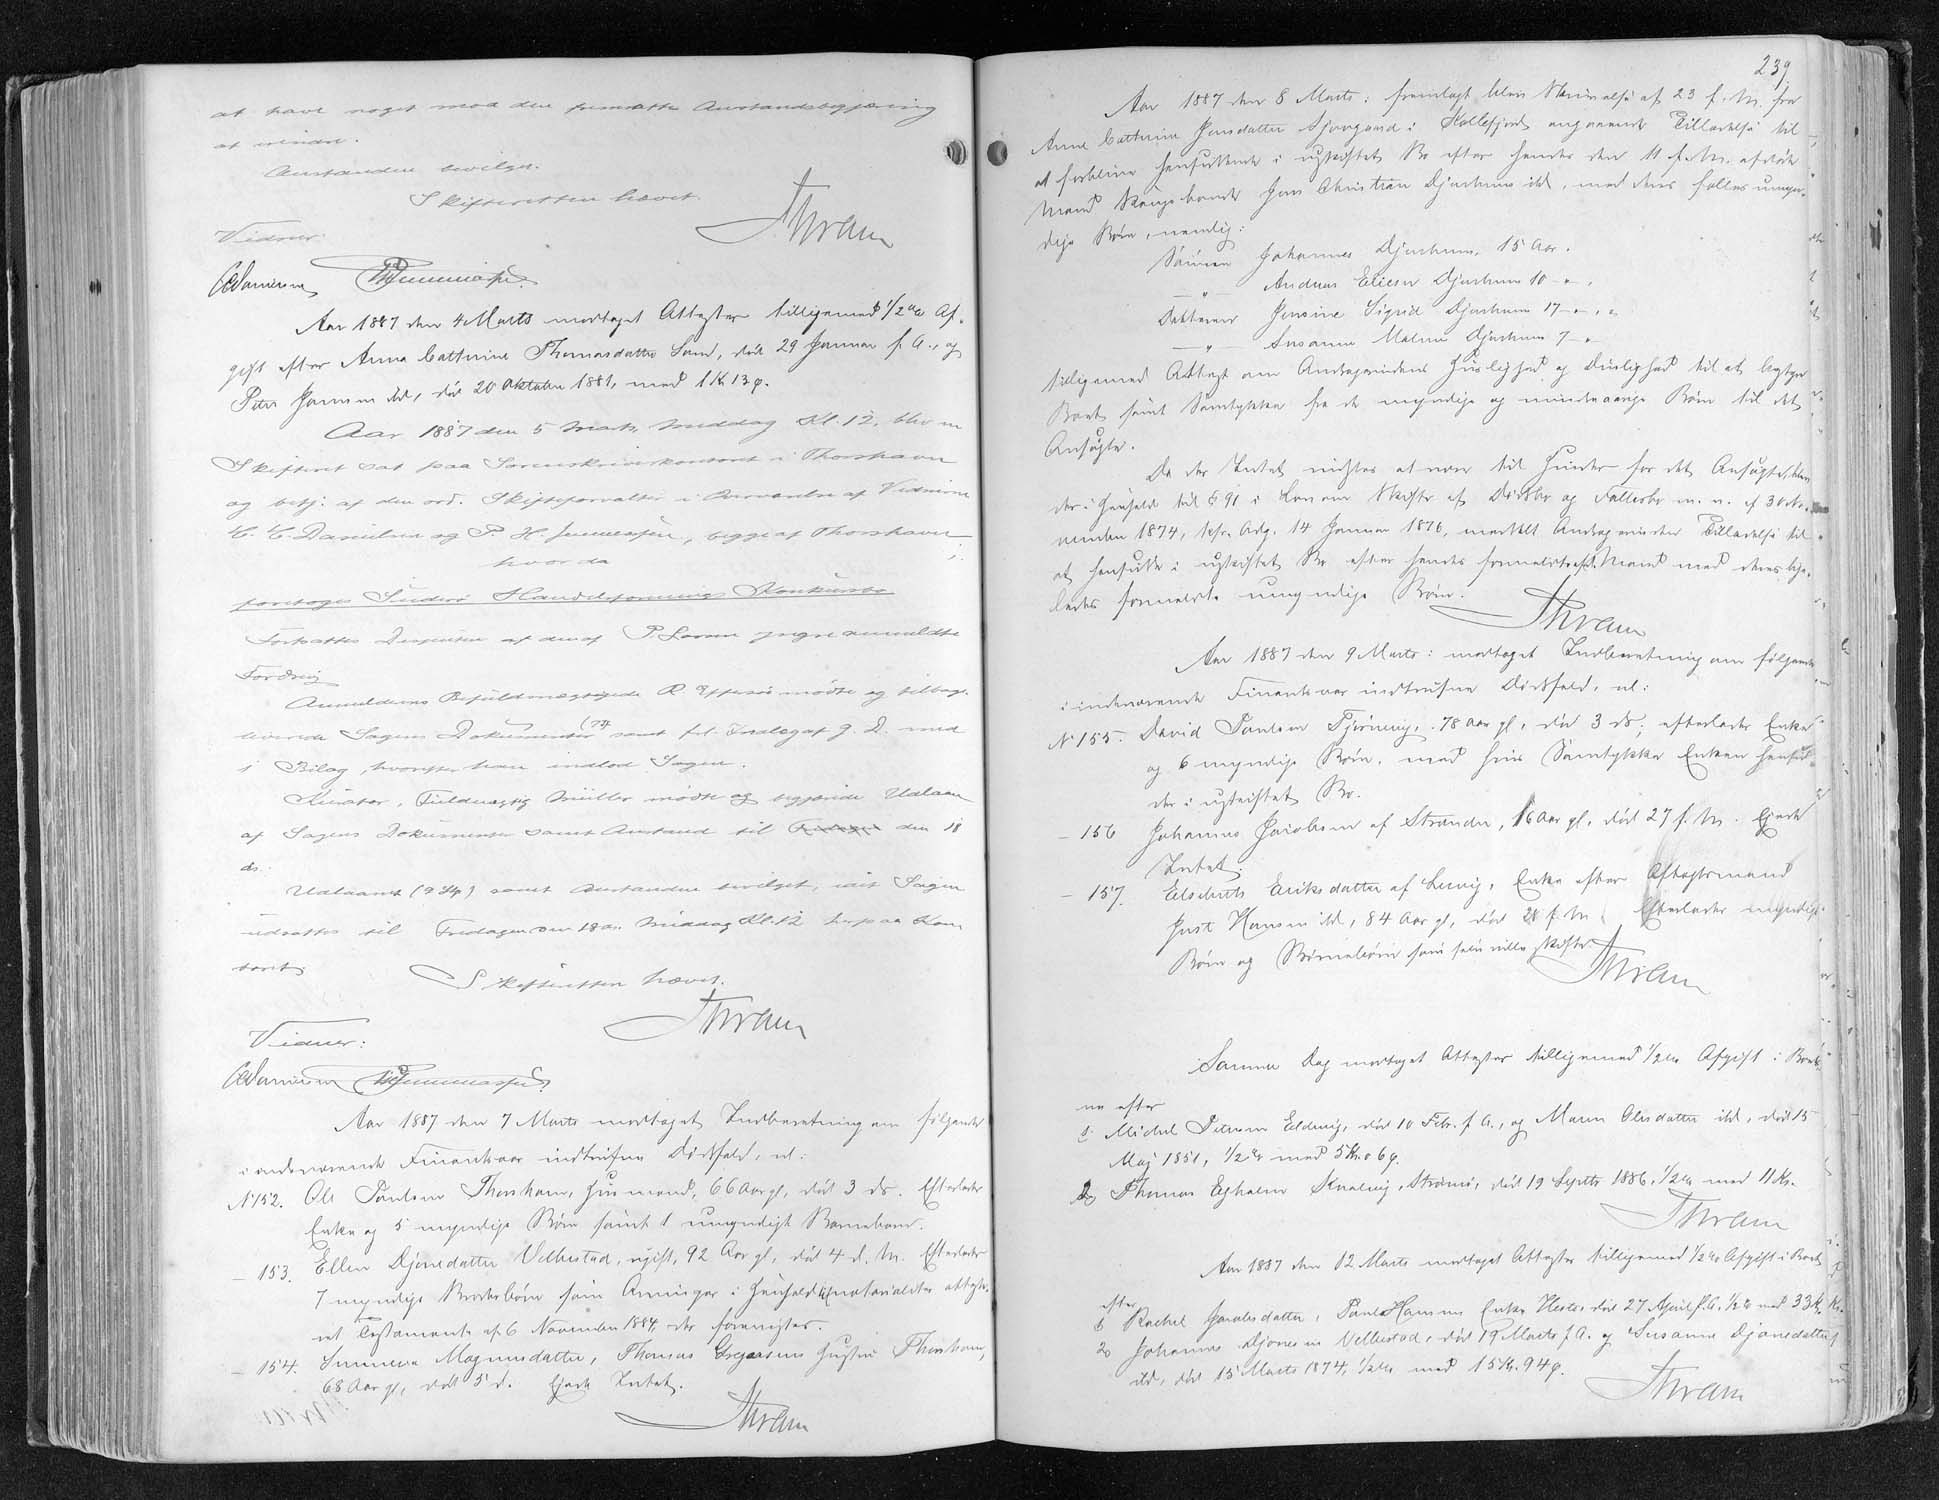 at have noget mod den fremsatte Anstandsbegjæring
at erindre.
Anstanden bevilget.
Skifteretten hævet.
Thram
Vidner:
CCDanielsen
Aar 1887 den 4 Marts modtaget Attester tilligemed 1/2 % Af-
gift efter Anna Cathrine Thomasdatter Sand, død 29 Januar f. A., og
Peter Joensen ibd, død 20 Oktober 1881, med 1 Kr 13 ø.
Aar 1887 den 5 Marts, Middag Kl. 12, blev en
Skifteret sat paa Sorenskriverkontoret i Thorshavn
og betj. af den ord. Skifteforvalter i Overværelse af Vidnerne
C. C. Danielsen og P. H. , begge af Thorshavn
hvor da
foretoges Suderø Handelsforenings Konkursbo
Fortsattes Decision af den af P. yngre anmeldte
Fordring
Anmelderens Befuldmægtigede R. Effersøe mødte og tilbage-
leverede Sagens Dokumenter (74 samt fel. Indlæg af g. D. med
j Bilag, hvorefter han indlod Sagen.
Kurator, Fuldmægtig Müller mødte og begjærede Udlaan
af Sagens Dokumenter samt Anstand til den 18
ds.
Udlaanet (9 ) samt Anstanden bevilget, idet Sagen
udsattes til Fredagen den 18 ds. Middag Kl. 12 her paa Kon-
toret
Skifteretten hævet.
Thram
Vidner:
CCDanielsen
Aar 1887 den 7 Marts modtaget Indberetning om følgende
i indeværende Finantsaar indtrufne Dødsfald, nl:
N 152. Ole Poulsen Thorshavn, Husmand, 66 Aar gl, død 3 ds. Efterlader
Enke og 5 myndige Børn samt 1 umyndigt Barnebarn.
- 153. Ellen Djonedatter Velbestad, ugift, 92 Aar gl, død 4 d. M. Efterlader
7 myndige Broderbørn som Arvinger i Henhold til notarialiter attest-
eret Testamente af 6 November 1884, der foreviistes.
- 154. Sunneva Magnusdatter, Thomas Hustru Thorshavn,
68 Aar gl, død 5 d. Ejede Intet.
Thram
239.
Aar 1887 den 8 Marts: fremlagt blev Skrivelse af 23 f. M. fra
Anne Cathrine Joensdatter i Kollefjord angaaende Tilladelse til
at forblive hensiddende i uskiftet Bo efter hendes den 11 f. M. afdøde
Mand Kongsbonde Jens Christian Djurhuus ibd, med deres fælles umyn-
dige Børn, nemlig:
Sønnen Johannes Djurhuus, 15 Aar.
- " - Andreas Djurhuus 10 - " .
Datteren Jensine Sigrid Djurhuus 17 - " . "
- " - Susanne Malene Djurhuus 7 - "
tilligemed Attest om Andragerindens Huslighed og Duelighed til at bestyre
Boet samt Samtykke fra de myndige og mindreaarige Børn til det
Ansøgte.
Da der Intet vidstes at være til Hinder for det Ansøgte, blev
der i Henhold til § 91 i Lov om Skifte af Dødsbo og Fællesbo m. v. af 30 No-
vember 1874, kfr. Adg. 14 Januar 1876, meddelt Andragerinden Tilladelse til
at hensidde i uskiftet Bo efter hendes fornævnte afd. Mand med deres
fornævnte umyndige Børn.
Thram
Aar 1887 den 9 Marts: modtaget Indberetning om følgende
i indeværende Finantsaar indtrufne Dødsfald, nl:
N 155. David Poulsen Tjørnevig, 78 Aar gl, død 3 ds; efterlader Enke
og 6 myndige Børn, med hvis Samtykke Enken hensid-
der i uskiftet Bo.
- 156 Johannes Jacobsen af Strænder, 16 Aar gl, død 27 f. M. Ejede
Intet.
- 157. Elsebeth Eriksdatter af Lervig, Enke efter Aftægtsmand
Just Hansen ibd, 84 Aar gl, død 28 f. M. Efterlader myndige
Børn og Børnebørn som selv ville skifte.
Thram
Samme Dag modtaget Attester tilligemed 1/2 % Afgift i Boer-
ne efter
1) Michel Petersen Eldevig, død 10 Febr. f. A., og Maren Olesdatter ibd, død 15
Maj 1851, 1/2 % med 5 Kr. 06 ø.
2) Thomas Egholm Kvalvig, Strømø, død 19 Septbr 1886, 1/2 % med 11 Kr.
Thram
Aar 1887 den 12 Marts modtaget Attester tilligemed 1/2 % Afgift i Boet
efter
1) Rachel Jacobsdatter, Poul Hansens Enke Hestø død 27 April f. A. 1/2 % med 33 Kr.
2) Johannes Djonesen Velbestad, død 19 Marts f A. og Susanne Djonedatter
ibd, død 15 Marts 1874, 1/2 % med 15 Kr. 94 ø.
Thram